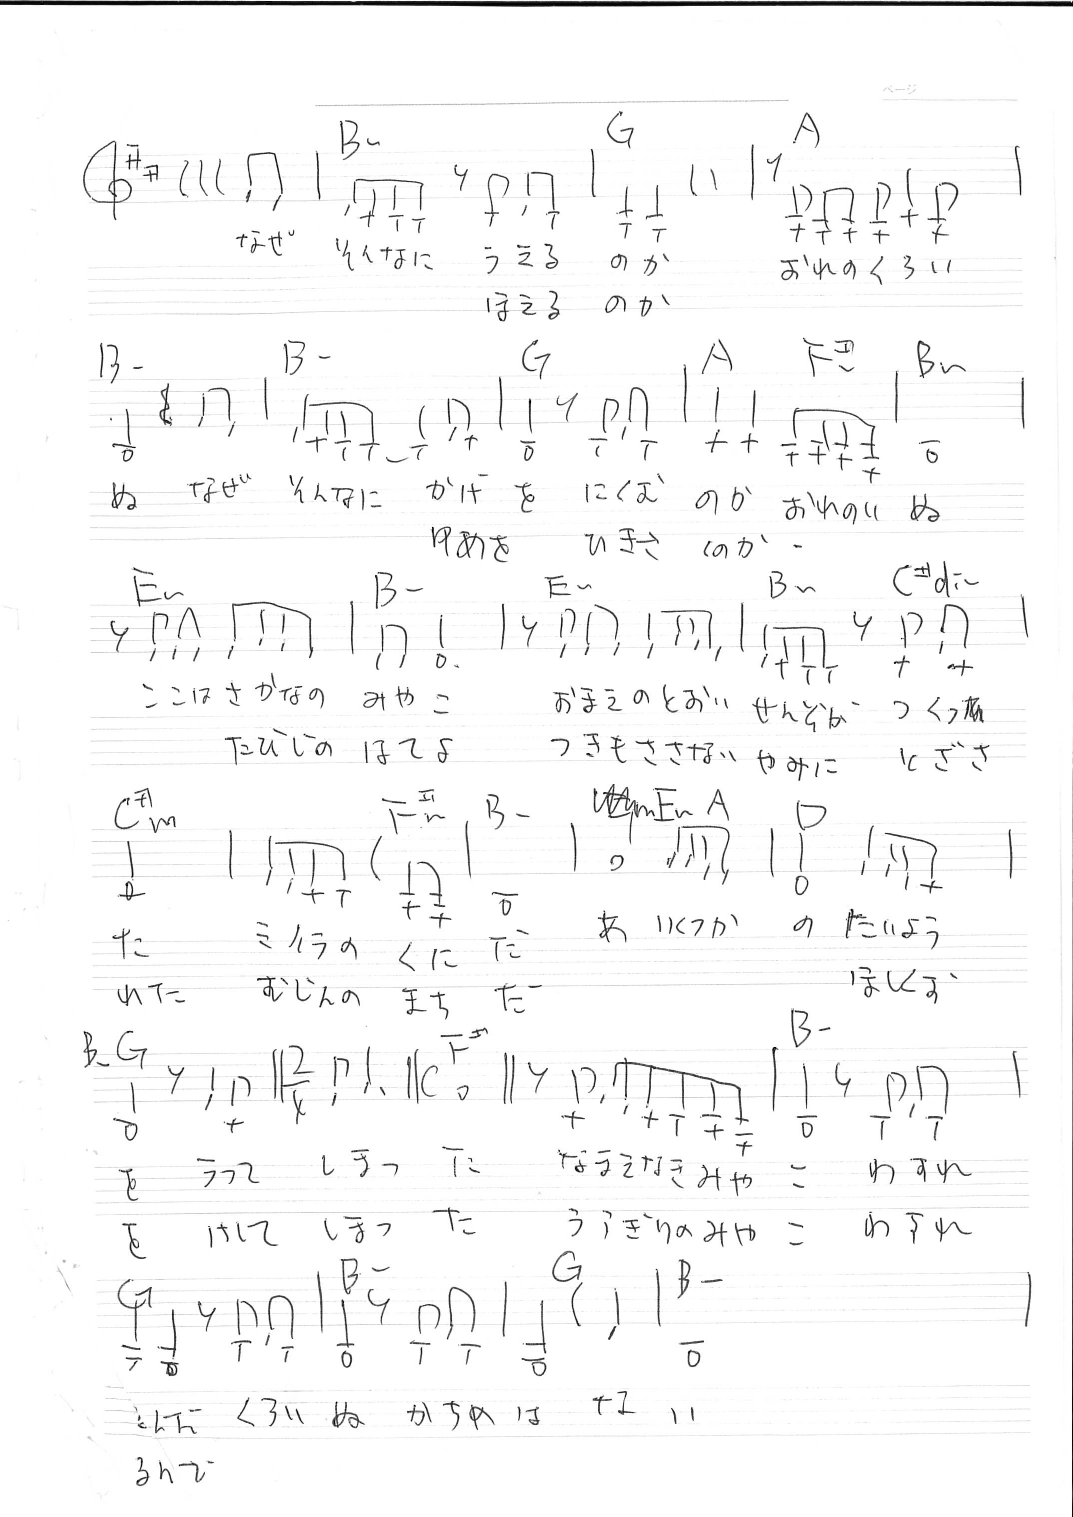 ページ
B- G A
なぜ そんなに うえる のか おれのくろい
ほえる のか
B- B- G A F# Bm
ぬ なぜ そんなに かげ を にくむ のか おれのい ぬ
ゆめを ひきさ くのか
Em B- Em Bm C#dim
ここはさかなの みやこ おまえのとおい せんぞが つくった
たびじの はてよ つきもささない やみに とざさ
C#m F#m B- Em A D
た ミイラの くに だ あ いくつか の たいよう
れた むじんの まち だ ほしくず
B- G 2/4 C F# B-
を うって しまっ た なまえなきみやこ わすれ
を けして しまっ た うらぎりのみやこ わすれ
G B- G B-
くろい ぬ かちめ は ない
るんで